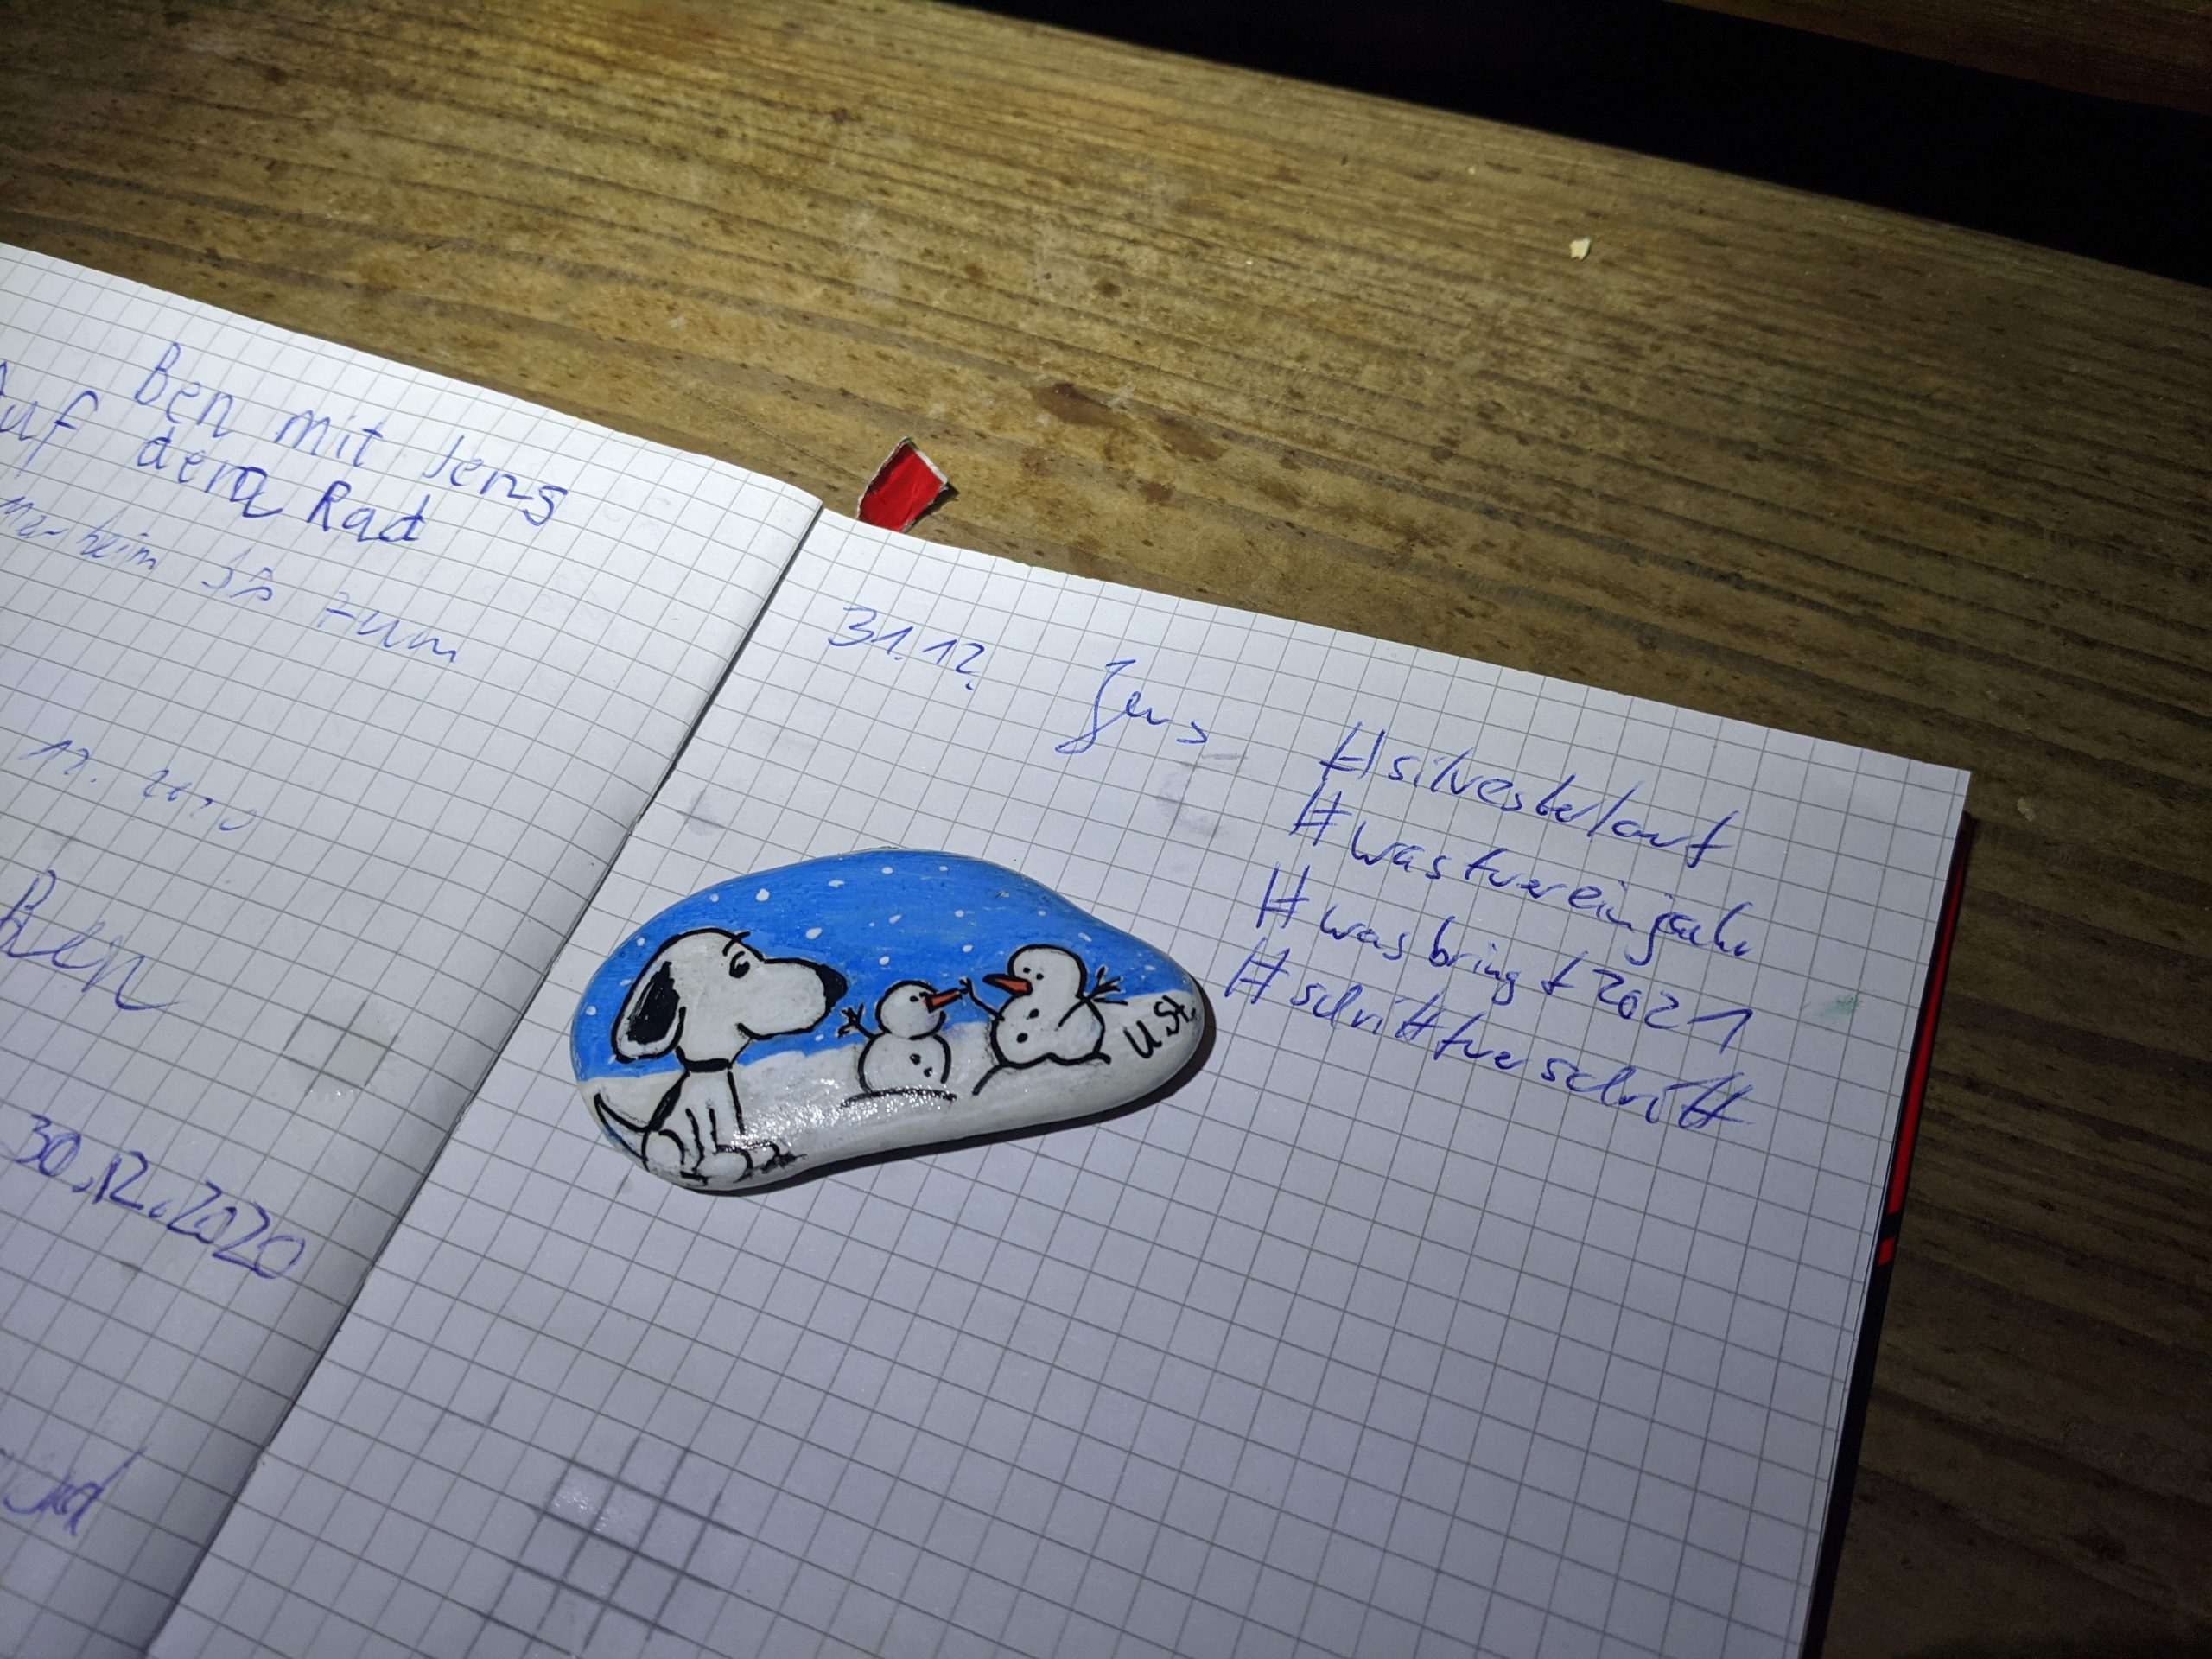 Ben mit Jens
Auf dem Rad
heim bis zum
12. 2020
Ben
30.12.2020
31.12. Jens #silvesterlauf
#wasfuereinjahr
#wasbringt2021
#schrittfuerschritt
U.St.